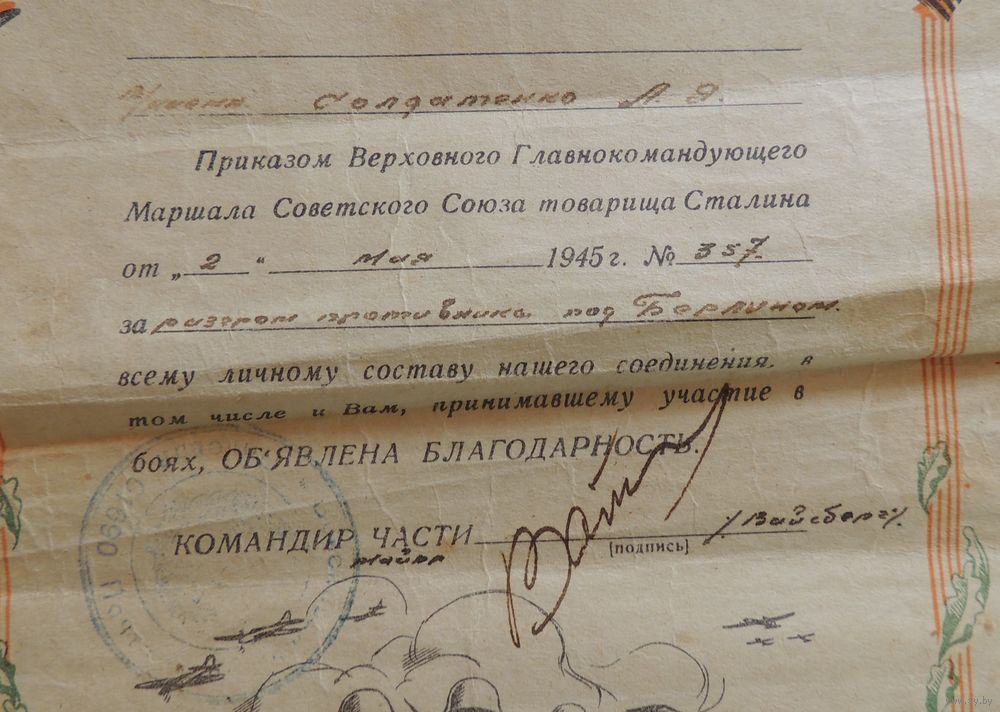 Солдатенко Л. Я.
Приказом Верховного Главнокомандующего
Маршала Советского Союза товарища Сталина
от „2“ мая 1945 г. № 357
за разгром противника под Берлином.
всему личному составу нашего соединения, в
том числе и Вам, принимавшему участие в
боях, ОБ'ЯВЛЕНА БЛАГОДАРНОСТЬ.
КОМАНДИР ЧАСТИ /Вайсберг/.
майор
[подпись]
www.ay.by